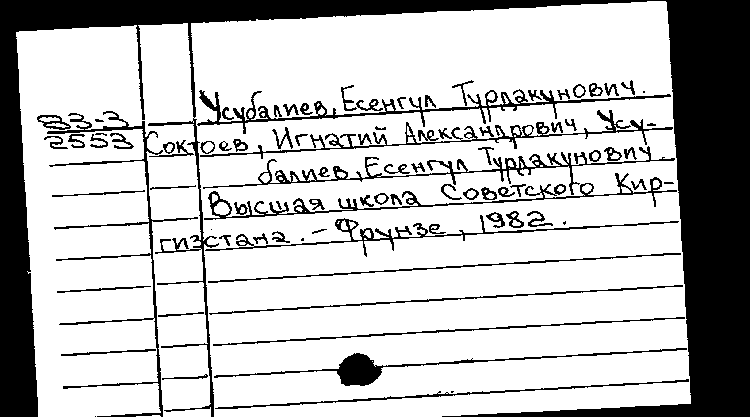 Усубалиев, Есенгул Турдакунович.
33-3
2553
Соктоев, Игнатий Александрович, Усу-
балиев, Есенгул Турдакунович.
Высшая школа Советского Кир-
гизстана. - Фрунзе, 1982.